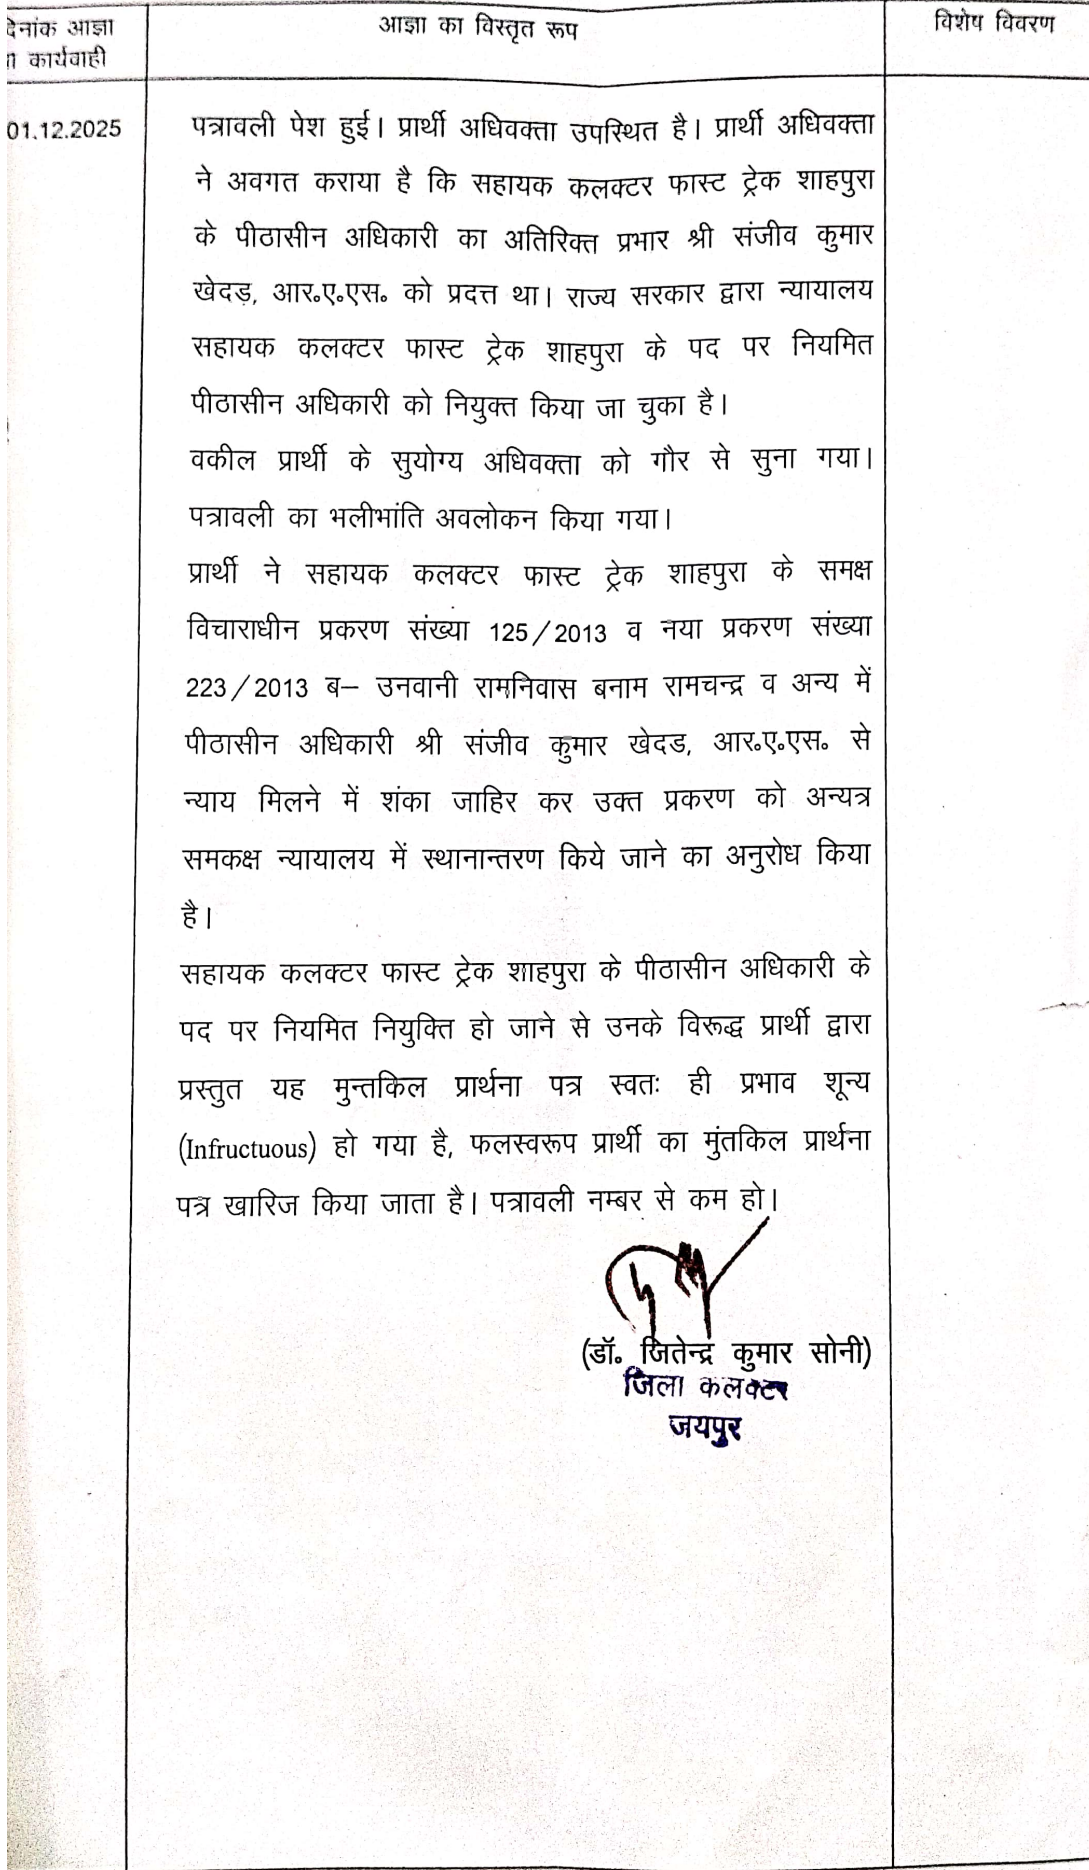 दिनांक आज्ञा
कार्यवाही
आज्ञा का विस्तृत रूप
विशेष विवरण
01.12.2025
पत्रावली पेश हुई। प्रार्थी अधिवक्ता उपस्थित है। प्रार्थी अधिवक्ता
ने अवगत कराया है कि सहायक कलक्टर फास्ट ट्रेक शाहपुरा
के पीठासीन अधिकारी का अतिरिक्त प्रभार श्री संजीव कुमार
खेदड़, आर०ए०एस० को प्रदत्त था। राज्य सरकार द्वारा न्यायालय
सहायक कलक्टर फास्ट ट्रेक शाहपुरा के पद पर नियमित
पीठासीन अधिकारी को नियुक्त किया जा चुका है।
वकील प्रार्थी के सुयोग्य अधिवक्ता को गौर से सुना गया।
पत्रावली का भलीभांति अवलोकन किया गया।
प्रार्थी ने सहायक कलक्टर फास्ट ट्रेक शाहपुरा के समक्ष
विचाराधीन प्रकरण संख्या 125/2013 व नया प्रकरण संख्या
223/2013 ब– उनवानी रामनिवास बनाम रामचन्द्र व अन्य में
पीठासीन अधिकारी श्री संजीव कुमार खेदड, आर०ए०एस० से
न्याय मिलने में शंका जाहिर कर उक्त प्रकरण को अन्यत्र
समकक्ष न्यायालय में स्थानान्तरण किये जाने का अनुरोध किया
है।
सहायक कलक्टर फास्ट ट्रेक शाहपुरा के पीठासीन अधिकारी के
पद पर नियमित नियुक्ति हो जाने से उनके विरूद्ध प्रार्थी द्वारा
प्रस्तुत यह मुन्तकिल प्रार्थना पत्र स्वतः ही प्रभाव शून्य
(Infructuous) हो गया है, फलस्वरूप प्रार्थी का मुंतकिल प्रार्थना
पत्र खारिज किया जाता है। पत्रावली नम्बर से कम हो।
(डॉ० जितेन्द्र कुमार सोनी)
जिला कलक्टर
जयपुर